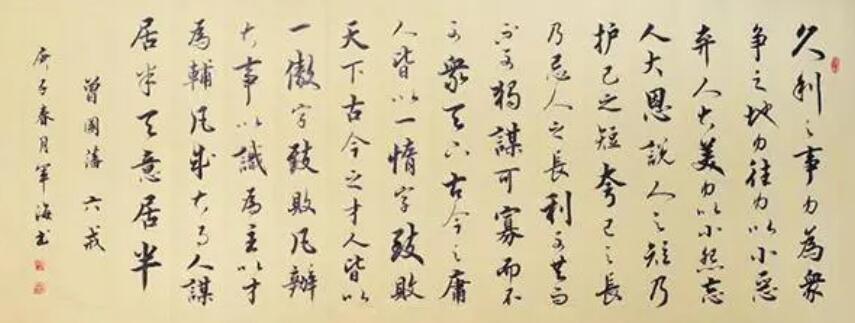 久利之事勿為眾
争之地勿往勿以小惡
弃人大美勿以小怨忘
人大恩説人之短乃
护己之短夸己之長
乃忌人之長利可共而
不可獨謀可寡而不
可眾天下古今之庸
人皆以一惰字致敗
天下古今之才人皆以
一傲字致敗凡辦
大事以識為主以才
為輔凡成大事人謀
居半天意居半
曾國藩六戒
庚子春月軍海书